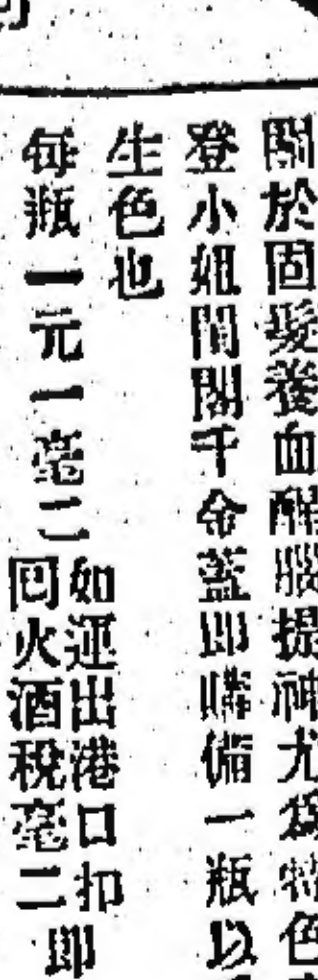 關於固髮養血醒腦提神尤為特色
登小姐閨閣千金盍即購備一瓶以
生色也
每瓶一元一毫二
如運出港口扣即
囘火酒稅毫二